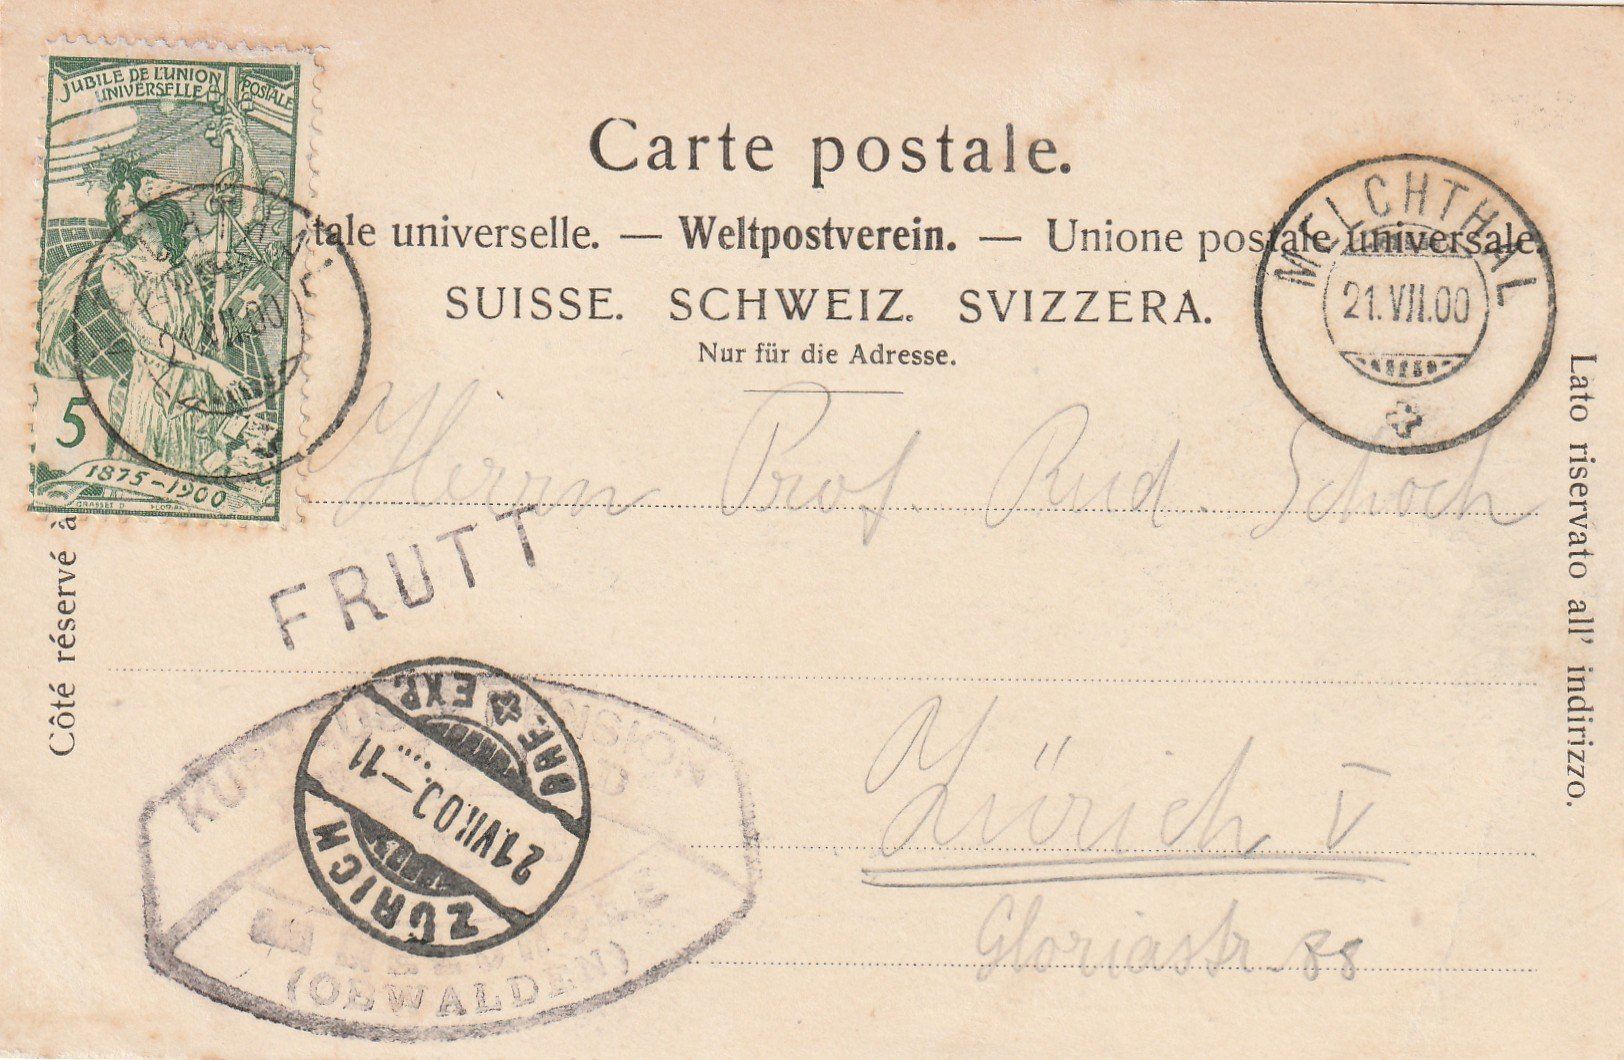 JUBILÉ DE L'UNION
POSTALE
UNIVERSELLE
5
1875-1900
GRASSET D
Carte postale.
tale universelle. — Weltpostverein. — Unione postale universale.
SUISSE. SCHWEIZ. SVIZZERA.
Nur für die Adresse.
MELCHTHAL
21.VII.00
Herrn Prof. Rud. Schoch
FRUTT
Côté réservé à
Lato riservato all' indirizzo.
BRF. EXP.
21.VII.00.–11
ZÜRICH
KURHAUS PENSION
(OBWALDEN)
Zürich V
Gloriastr. 88